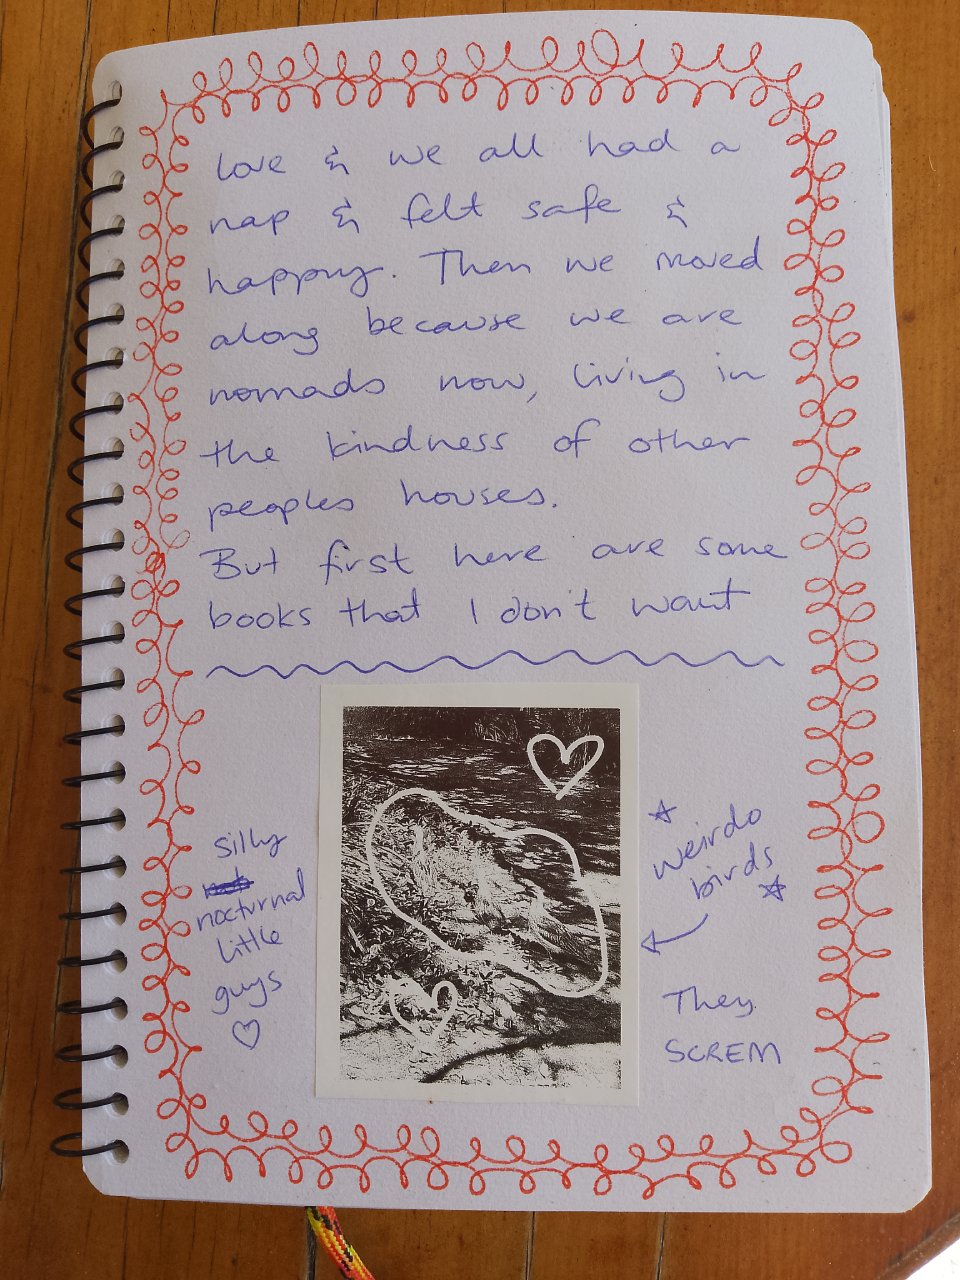 love & we all had a
nap & felt safe &
happy. Then we moved
along because we are
nomads now, living in
the kindness of other
peoples houses.
But first here are some
books that I don't want
silly
nocturnal
little
guys
weirdo
birds
They
SCREM